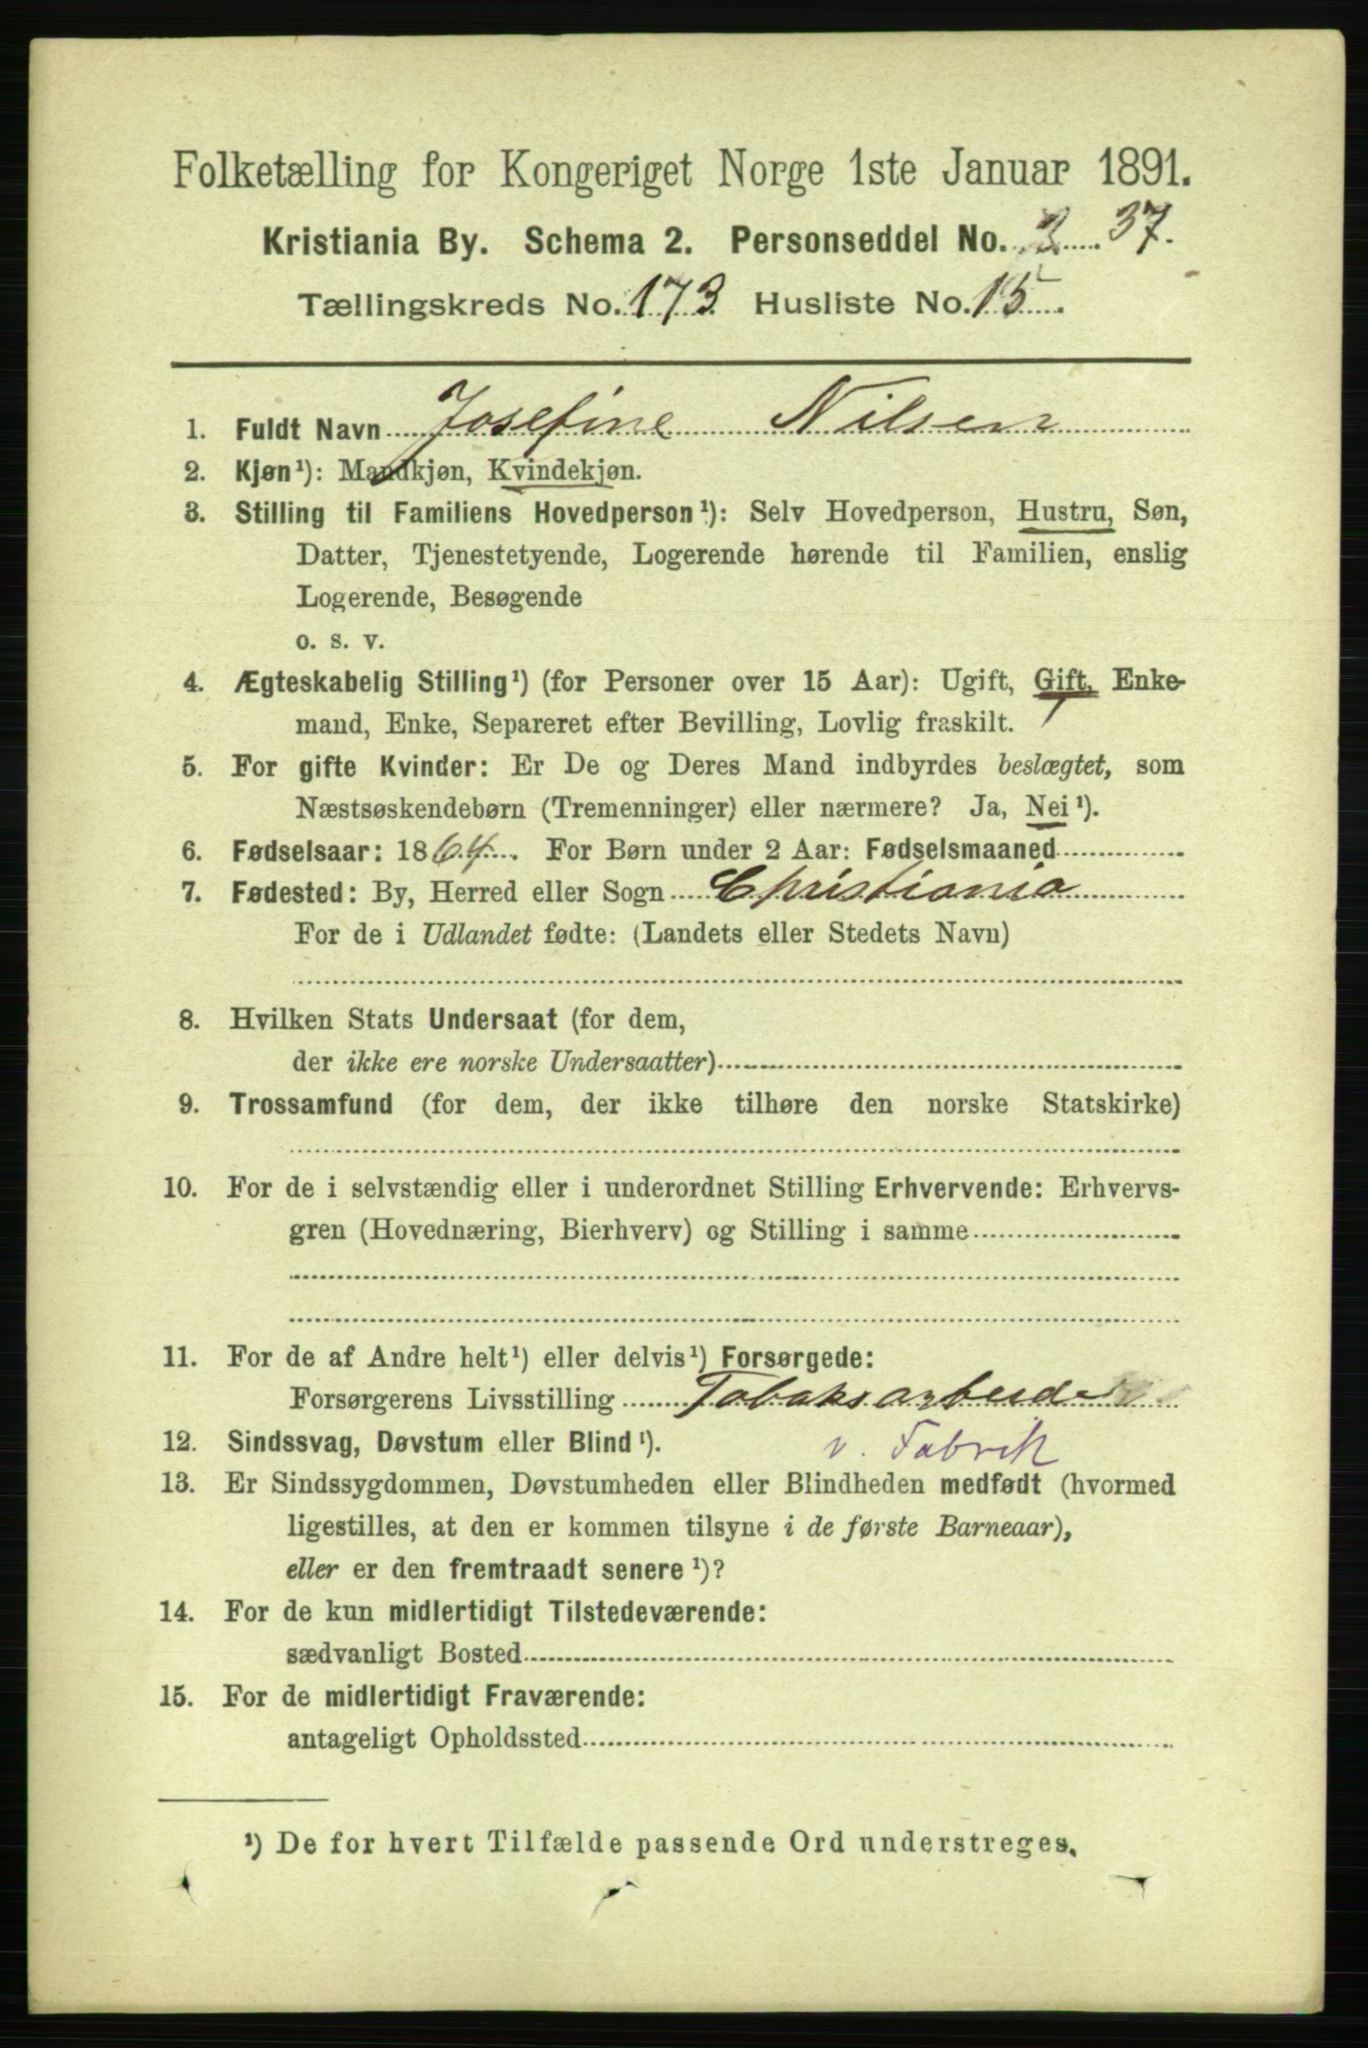 Folketælling for Kongeriget Norge 1ste Januar 1891.
Kristiania By. Schema 2. Personseddel No. 37.
Tællingskreds No. 173 Husliste No. 15
1. Fuldt Navn Josefine Nilsen
2. Kjøn¹): Mandkjøn, Kvindekjøn.
3. Stilling til Familiens Hovedperson¹): Selv Hovedperson, Hustru, Søn,
Datter, Tjenestetyende, Logerende hørende til Familien, enslig
Logerende, Besøgende
o. s. v.
4. Ægteskabelig Stilling¹) (for Personer over 15 Aar): Ugift, Gift, Enke-
mand, Enke, Separeret efter Bevilling, Lovlig fraskilt.
5. For gifte Kvinder: Er De og Deres Mand indbyrdes beslægtet, som
Næstsøskendebørn (Tremenninger) eller nærmere? Ja, Nei¹).
6. Fødselsaar: 1864. For Børn under 2 Aar: Fødselsmaaned
7. Fødested: By, Herred eller Sogn Christiania
For de i Udlandet fødte: (Landets eller Stedets Navn)
8. Hvilken Stats Undersaat (for dem,
der ikke ere norske Undersaatter)
9. Trossamfund (for dem, der ikke tilhøre den norske Statskirke)
10. For de i selvstændig eller i underordnet Stilling Erhvervende: Erhvervs-
gren (Hovednæring, Bierhverv) og Stilling i samme
11. For de af Andre helt¹) eller delvis¹) Forsørgede:
Forsørgerens Livsstilling Tobaksarbeider
12. Sindssvag, Døvstum eller Blind¹). v. Fabrik
13. Er Sindssygdommen, Døvstumheden eller Blindheden medfødt (hvormed
ligestilles, at den er kommen tilsyne i de første Barneaar),
eller er den fremtraadt senere¹)?
14. For de kun midlertidigt Tilstedeværende:
sædvanligt Bosted
15. For de midlertidigt Fraværende:
antageligt Opholdssted
¹) De for hvert Tilfælde passende Ord understreges.